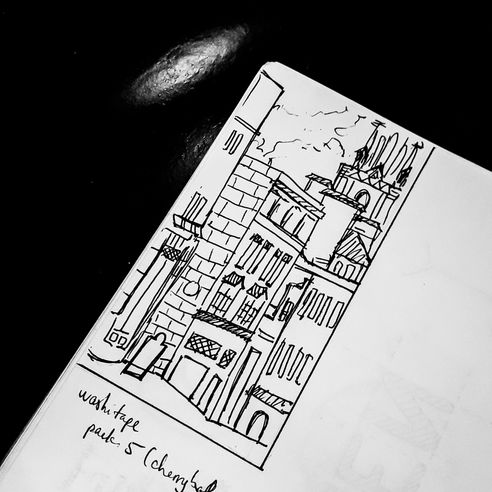 washi tape
pack 5 (cherry